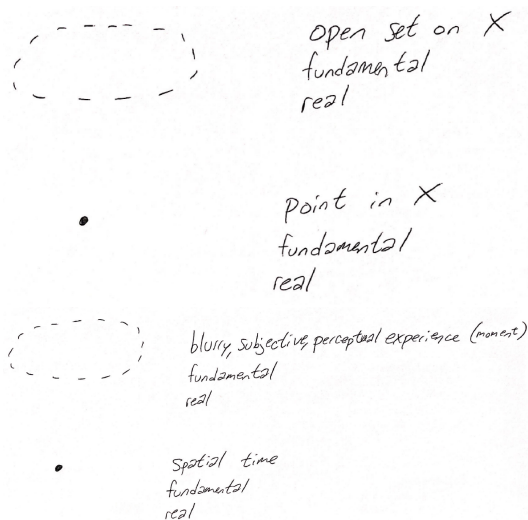 open set on X
fundamental
real
point in X
fundamental
real
blurry, subjective, perceptual experience (moment)
fundamental
real
spatial time
fundamental
real